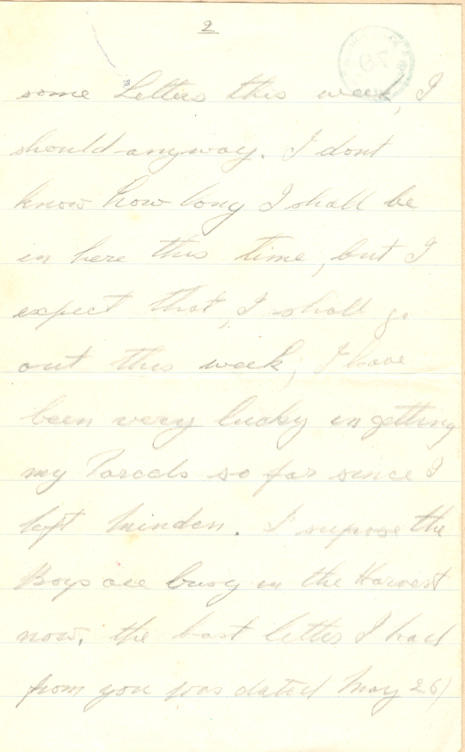 2
some Letters this week, I
should anyway. I dont
know how long I shall be
in here this time, but I
expect that, I shall go
out this week, I have
been very lucky in getting
my Parcels so far since I
left Minden. I supose the
Boys are busy in the Harvest
now, the last letter I had
from you was dated May 26/